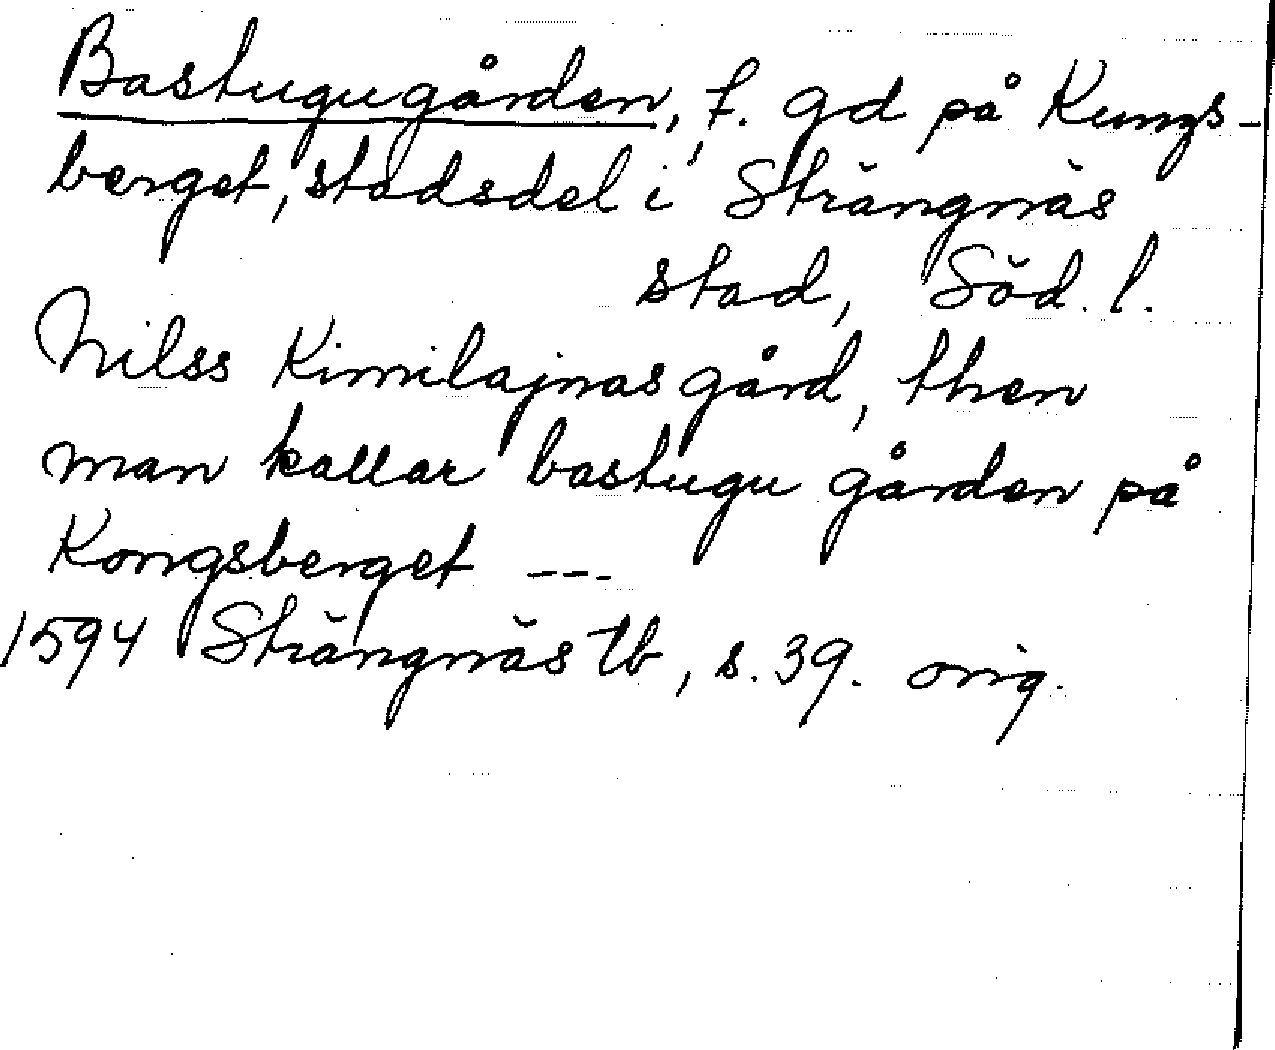 Bastugugården, f. gd på Kungs-
berget, stadsdel i Strängnäs
stad, Söd. l.
Nilss Kimilajnas gård, then
man kallar bastugu gården på
Kongsberget ---
1594 Strängnäs tb, s. 39. orig.